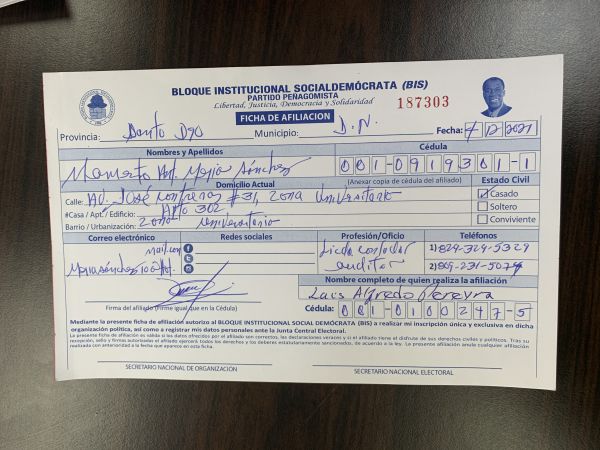 BLOQUE INSTITUCIONAL SOCIALDEMÓCRATA (BIS)
PARTIDO PEÑAGOMISTA
Libertad, Justicia, Democracia y Solidaridad
187303
FICHA DE AFILIACION
Provincia: Santo Dgo Municipio: D.N. Fecha: 12/2021
Nombres y Apellidos Cédula
Mamerto Ant. Mejia Sánchez 001-0919301-1
Domicilio Actual (Anexar copia de cédula del afiliado) Estado Civil
Calle: Av. José Contreras #31, Zona Universitaria Casado
#Casa / Apt. / Edificio: Apto 302 Soltero
Barrio / Urbanización: Zona Universitaria Conviviente
Correo electrónico Redes sociales Profesión/Oficio Teléfonos
mail.com Contador 1) 829-324-5329
auditor 2) 809-231-5074
Nombre completo de quien realiza la afiliación
Luis Alfredo Pereyra
Firma del afiliado (Firme igual que en la Cédula) Cédula: 001-0100247-5
Mediante la presente ficha de afiliación autorizo al BLOQUE INSTITUCIONAL SOCIAL DEMÓCRATA (BIS) a realizar mi inscripción única y exclusiva en dicha
organización política, así como a registrar mis datos personales ante la Junta Central Electoral.
La presente ficha de afiliación es valida si los datos descritos por el afiliado son correctos, las declaraciones veraces y si el afiliado tiene el disfrute de sus derechos civiles y políticos. Tras su
recepción, sello y firmas autorizadas el afiliado ejercerá todos los derechos y los deberes estatutariamente sancionados, de acuerdo a la ley. La presente afiliación anule cualquier afiliación
realizada con anterioridad a la fecha que aparece en esta ficha.
SECRETARIO NACIONAL DE ORGANIZACIÓN SECRETARIO NACIONAL ELECTORAL